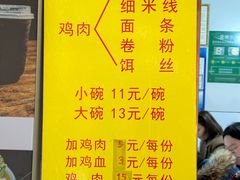 细米线
鸡肉
面条
卷粉
饵丝
小碗 11元/碗
大碗 13元/碗
加鸡肉 5元/每份
加鸡血 3元/每份
鸡肉 15元/每份